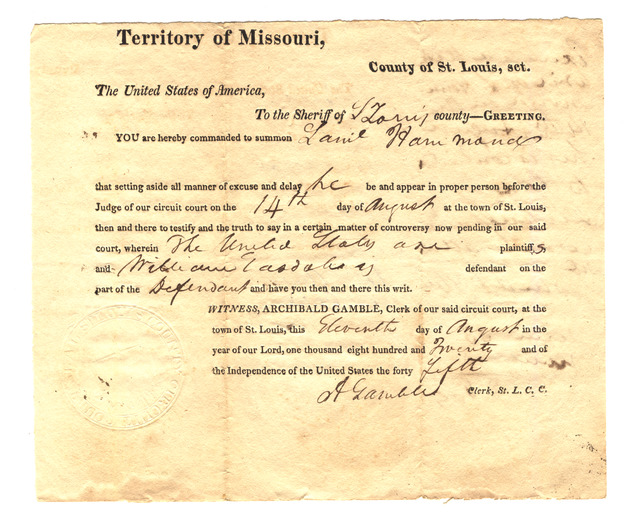 Territory of Missouri,
County of St. Louis, sct.
The United States of America,
To the Sheriff of St Louis county—GREETING.
YOU are hereby commanded to summon Hammond
that setting aside all manner of excuse and delay he be and appear in proper person before the
Judge of our circuit court on the 14th day of August at the town of St. Louis,
then and there to testify and the truth to say in a certain matter of controversy now pending in our said
court, wherein The United States are plaintiffs
and William defendant on the
part of the Defendant and have you then and there this writ.
WITNESS, ARCHIBALD GAMBLE, Clerk of our said circuit court, at the
town of St. Louis, this Eleventh day of August in the
year of our Lord, one thousand eight hundred and Twenty and of
the Independence of the United States the forty fifth
A Gamble Clerk, St. L. C. C.